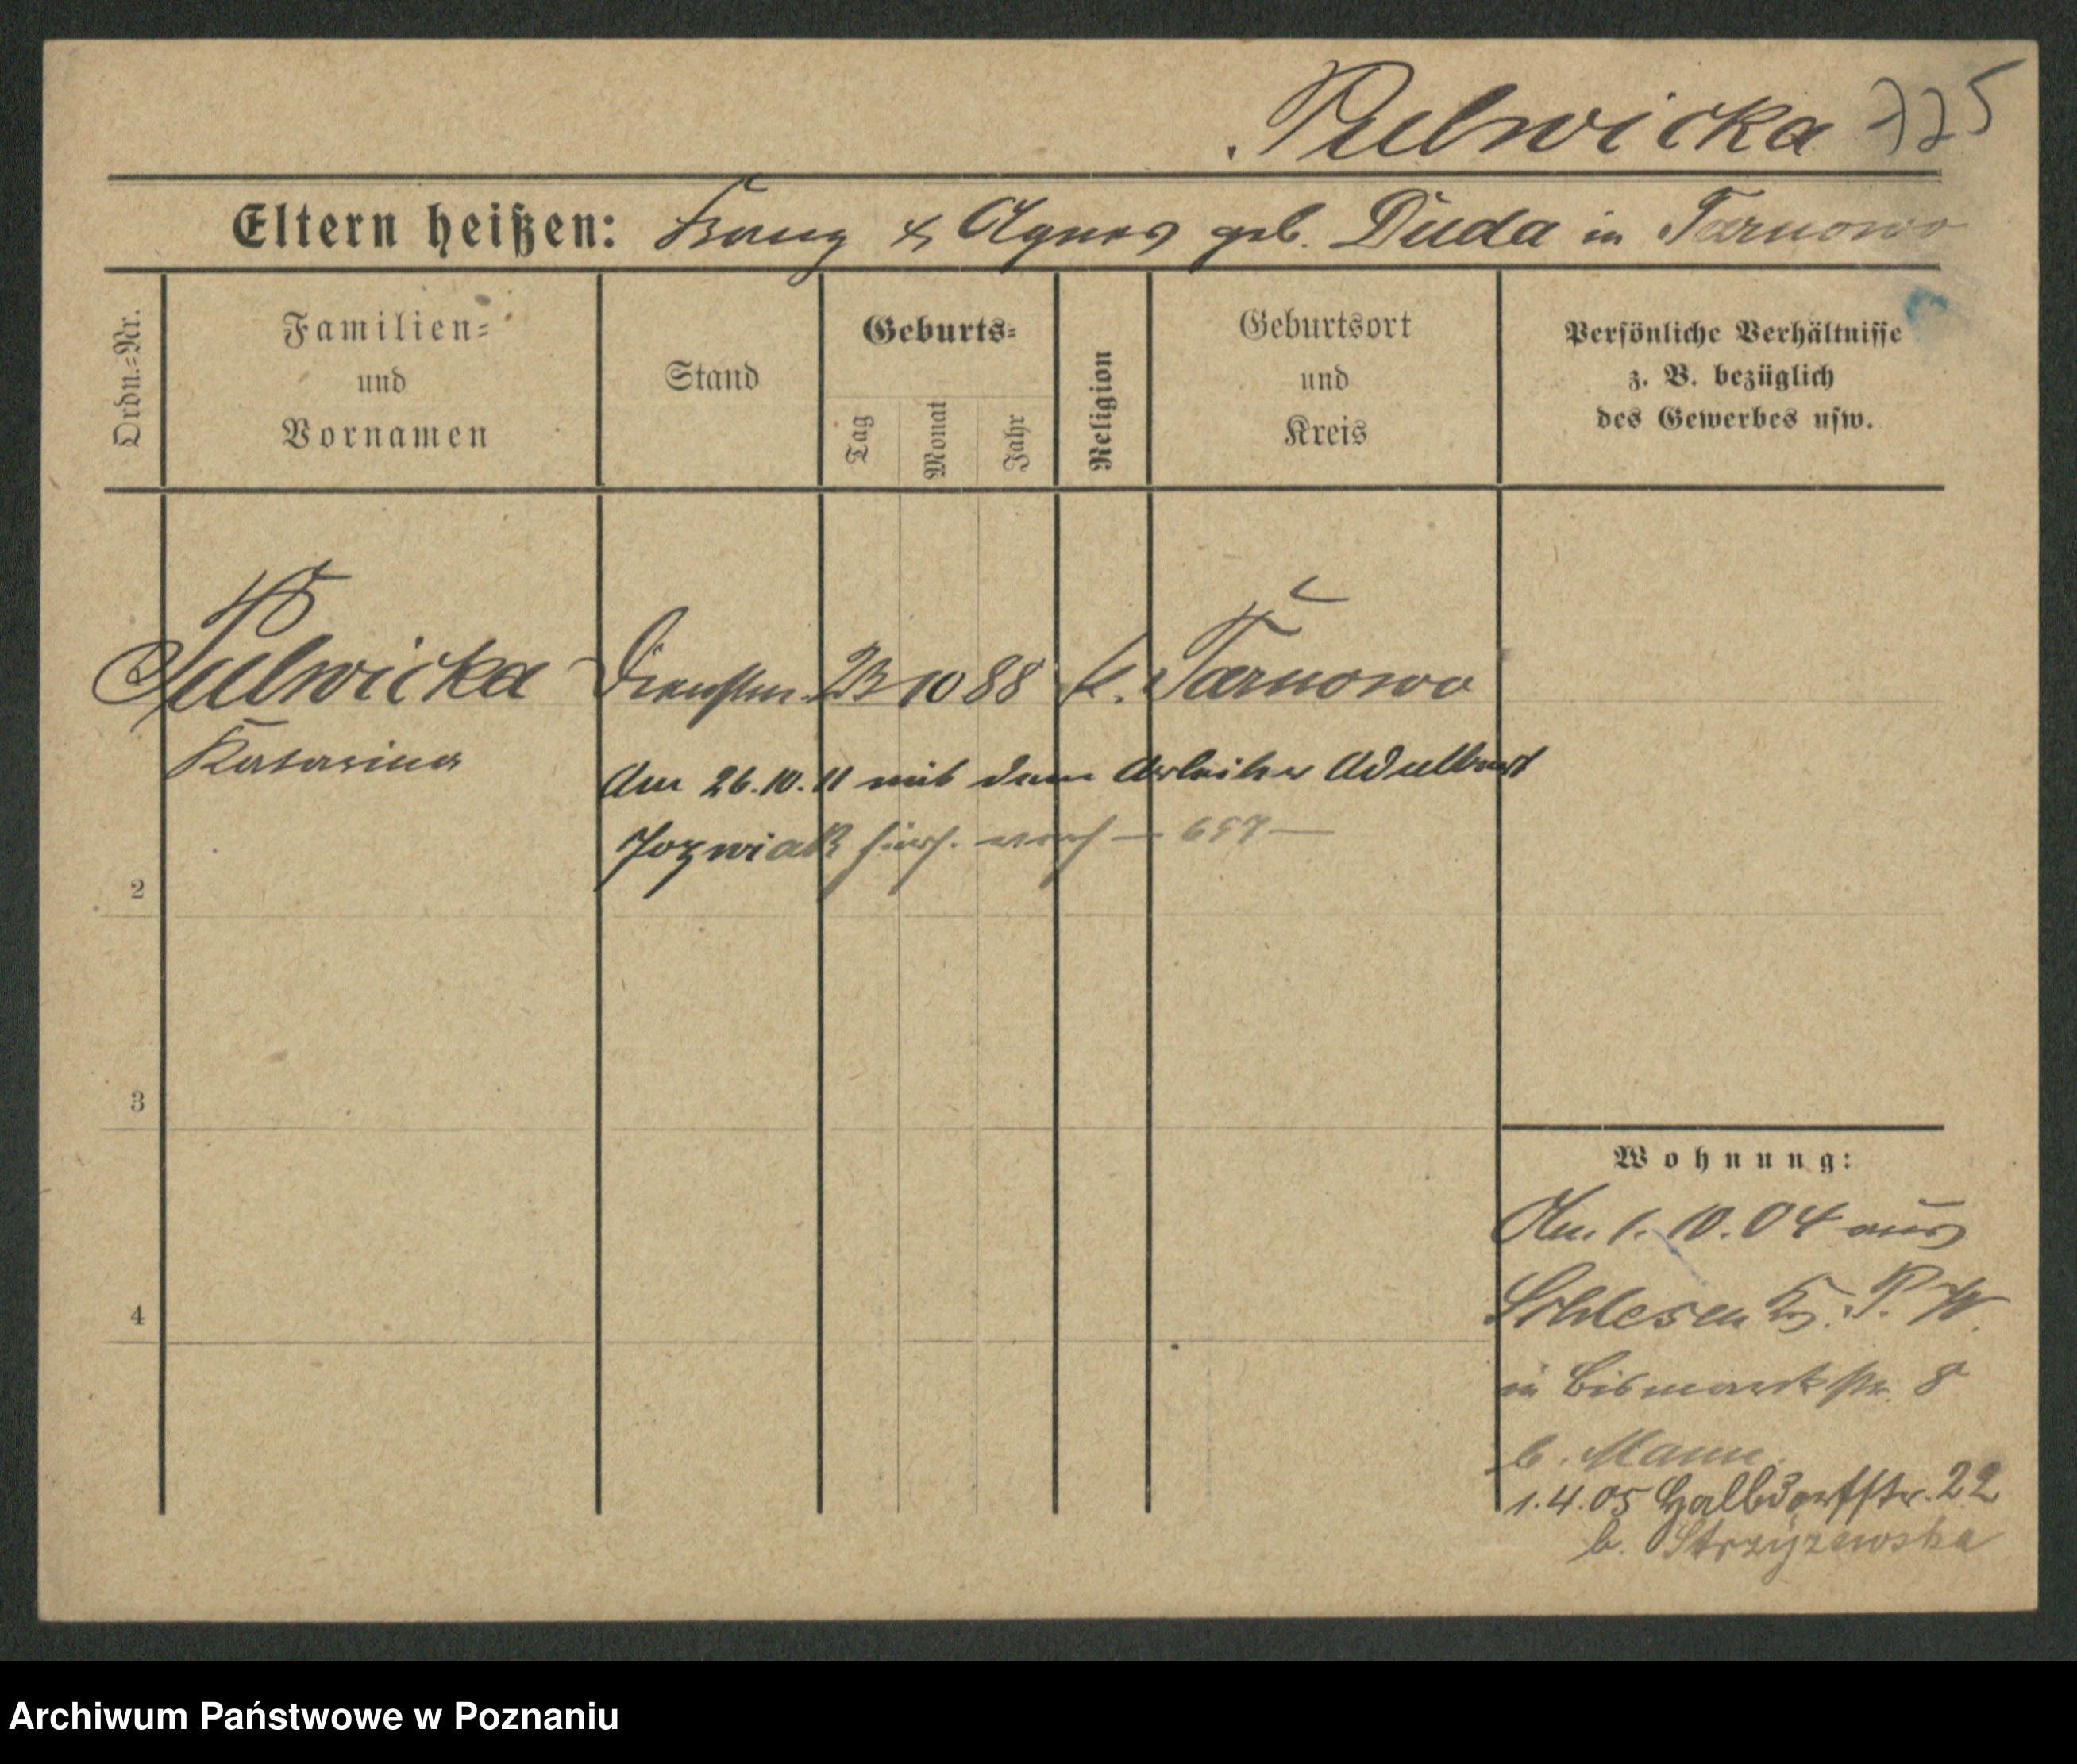 Pulwicka 775
Eltern heißen: Franz & Agnes geb. Duda in Tarnowo
Ordn.=Nr.
Familien=
und
Vornamen
Stand
Geburts=
Tag
Monat
Jahr
Religion
Geburtsort
und
Kreis
Persönliche Verhältnisse
z. B. bezüglich
des Gewerbes usw.
Pulwicka Dienstm. 23 10 88 k. Tarnowo
Katarina
Am 26.10.11 mit dem Arbeiter Adalbert
Jozwiak hier verh
2
3
4
Wohnung:
Am 1.10.04 aus
Schlesen Krs. P. W.
in Bismarckstr. 8
b. Mann.
1.4.05 Halbdorfstr. 22
b. Strzyżewska
Archiwum Państwowe w Poznaniu